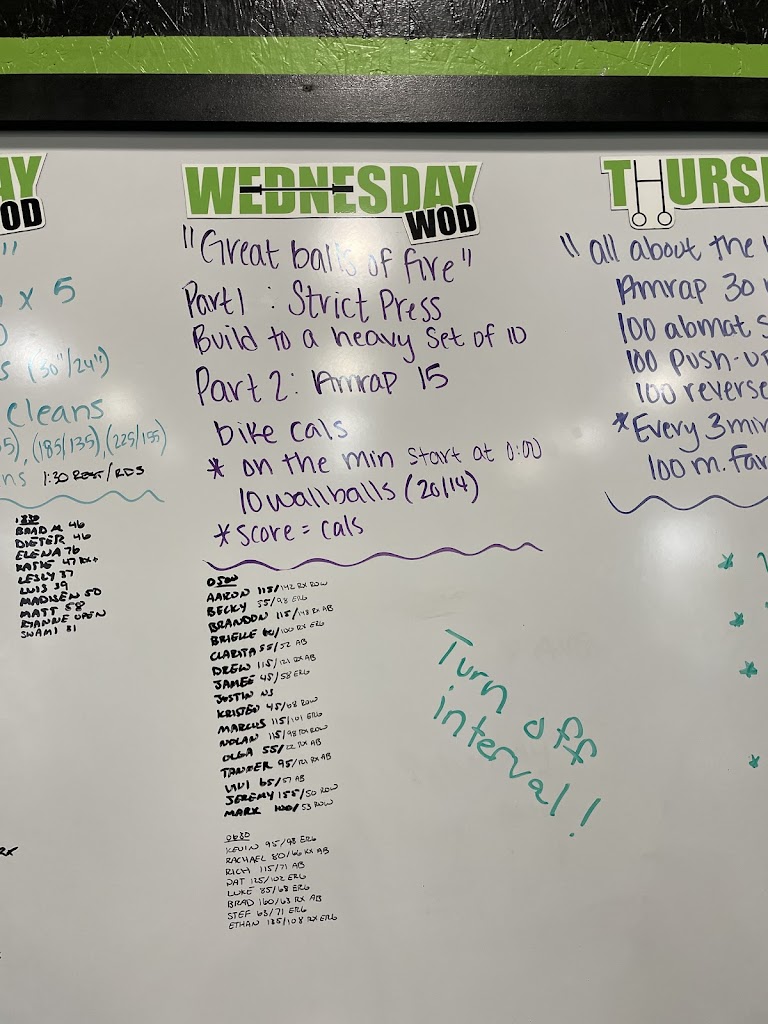 AY
OD
"
x 5
(30"/24")
cleans
5), (185/135), (225/155)
ns 1:30 REST/RDS
BRAD M 46
DIETER 46
ELENA 76
KATIE 47 RX+
LESLY 37
LUIS 39
MADISEN 50
MATT 58
RYANNE OPEN
SWAMI 81
WEDNESDAY
WOD
"Great balls of fire"
Part 1 : Strict Press
Build to a heavy set of 10
Part 2: Amrap 15
bike cals
* on the min start at 0:00
10 wallballs (20/14)
* score = cals
0500
AARON 115/142 RX ROW
BECKY 55/98 ERG
BRANDON 115/148 RX AB
BRIELLE 60/100 RX ERG
CLARITA 55/52 AB
DREW 115/121 RX AB
JAMEE 45/58 ERG
JUSTIN NS
KRISTEN 45/68 ROW
MARCUS 115/101 ERG
NOLAN 115/98 RX ROW
OLGA 55/ RX AB
TANNER 95/121 RX AB
65/57 AB
JEREMY 155/50 ROW
MARK 100/53 ROW
0630
KEVIN 95/98 ERG
RACHAEL 80/66 RX AB
RICH 115/71 AB
PAT 125/102 ERG
LUKE 85/68 ERG
BRAD 160/63 RX AB
STEF 65/71 ERG
ETHAN 135/108 RX ERG
Turn off
interval!
THURS
"all about the
Amrap 30
100 abmat s
100 push-up
100 reverse
*Every 3 min
100 m. Far
*
*
*
*